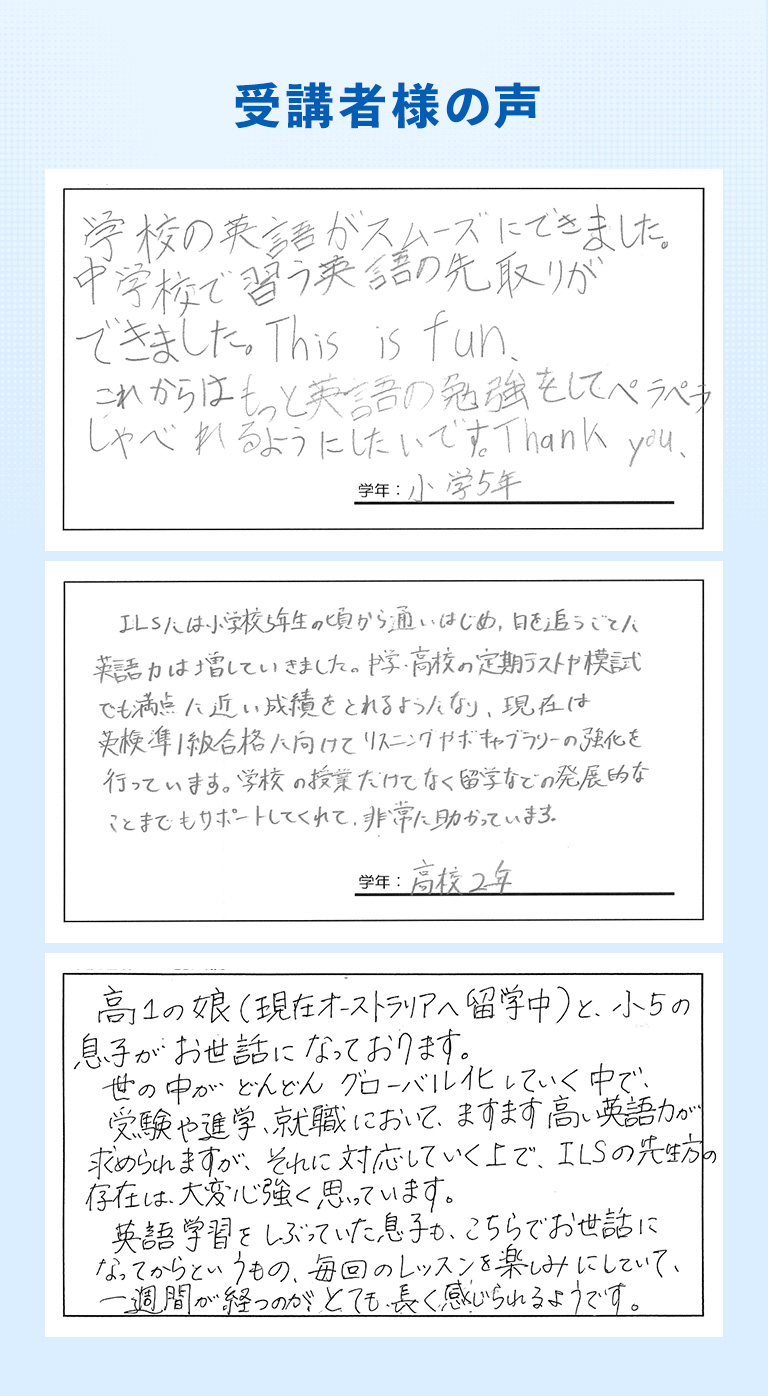 受講者様の声
学校の英語がスムーズにできました。
中学校で習う英語の先取りが
できました。This is fun.
これからはもっと英語の勉強をしてペラペラ
しゃべれるようにしたいです。Thank you.
学年：小学5年
ILSには小学校5年生の頃から通いはじめ、日を追うごとに
英語力は増していきました。中学・高校の定期テストや模試
でも満点に近い成績をとれるようになり、現在は
英検準1級合格に向けてリスニングやボキャブラリーの強化を
行っています。学校の授業だけでなく留学などの発展的な
ことまでもサポートしてくれて、非常に助かっています。
学年：高校2年
高1の娘(現在オーストラリアへ留学中)と、小5の
息子がお世話になっております。
世の中がどんどんグローバル化していく中で、
受験や進学、就職において、ますます高い英語力が
求められますが、それに対応していく上で、ILSの先生方の
存在は、大変心強く思っています。
英語学習をしぶっていた息子も、こちらでお世話に
なってからというもの、毎回のレッスンを楽しみにしていて、
一週間が経つのがとても長く感じられるようです。